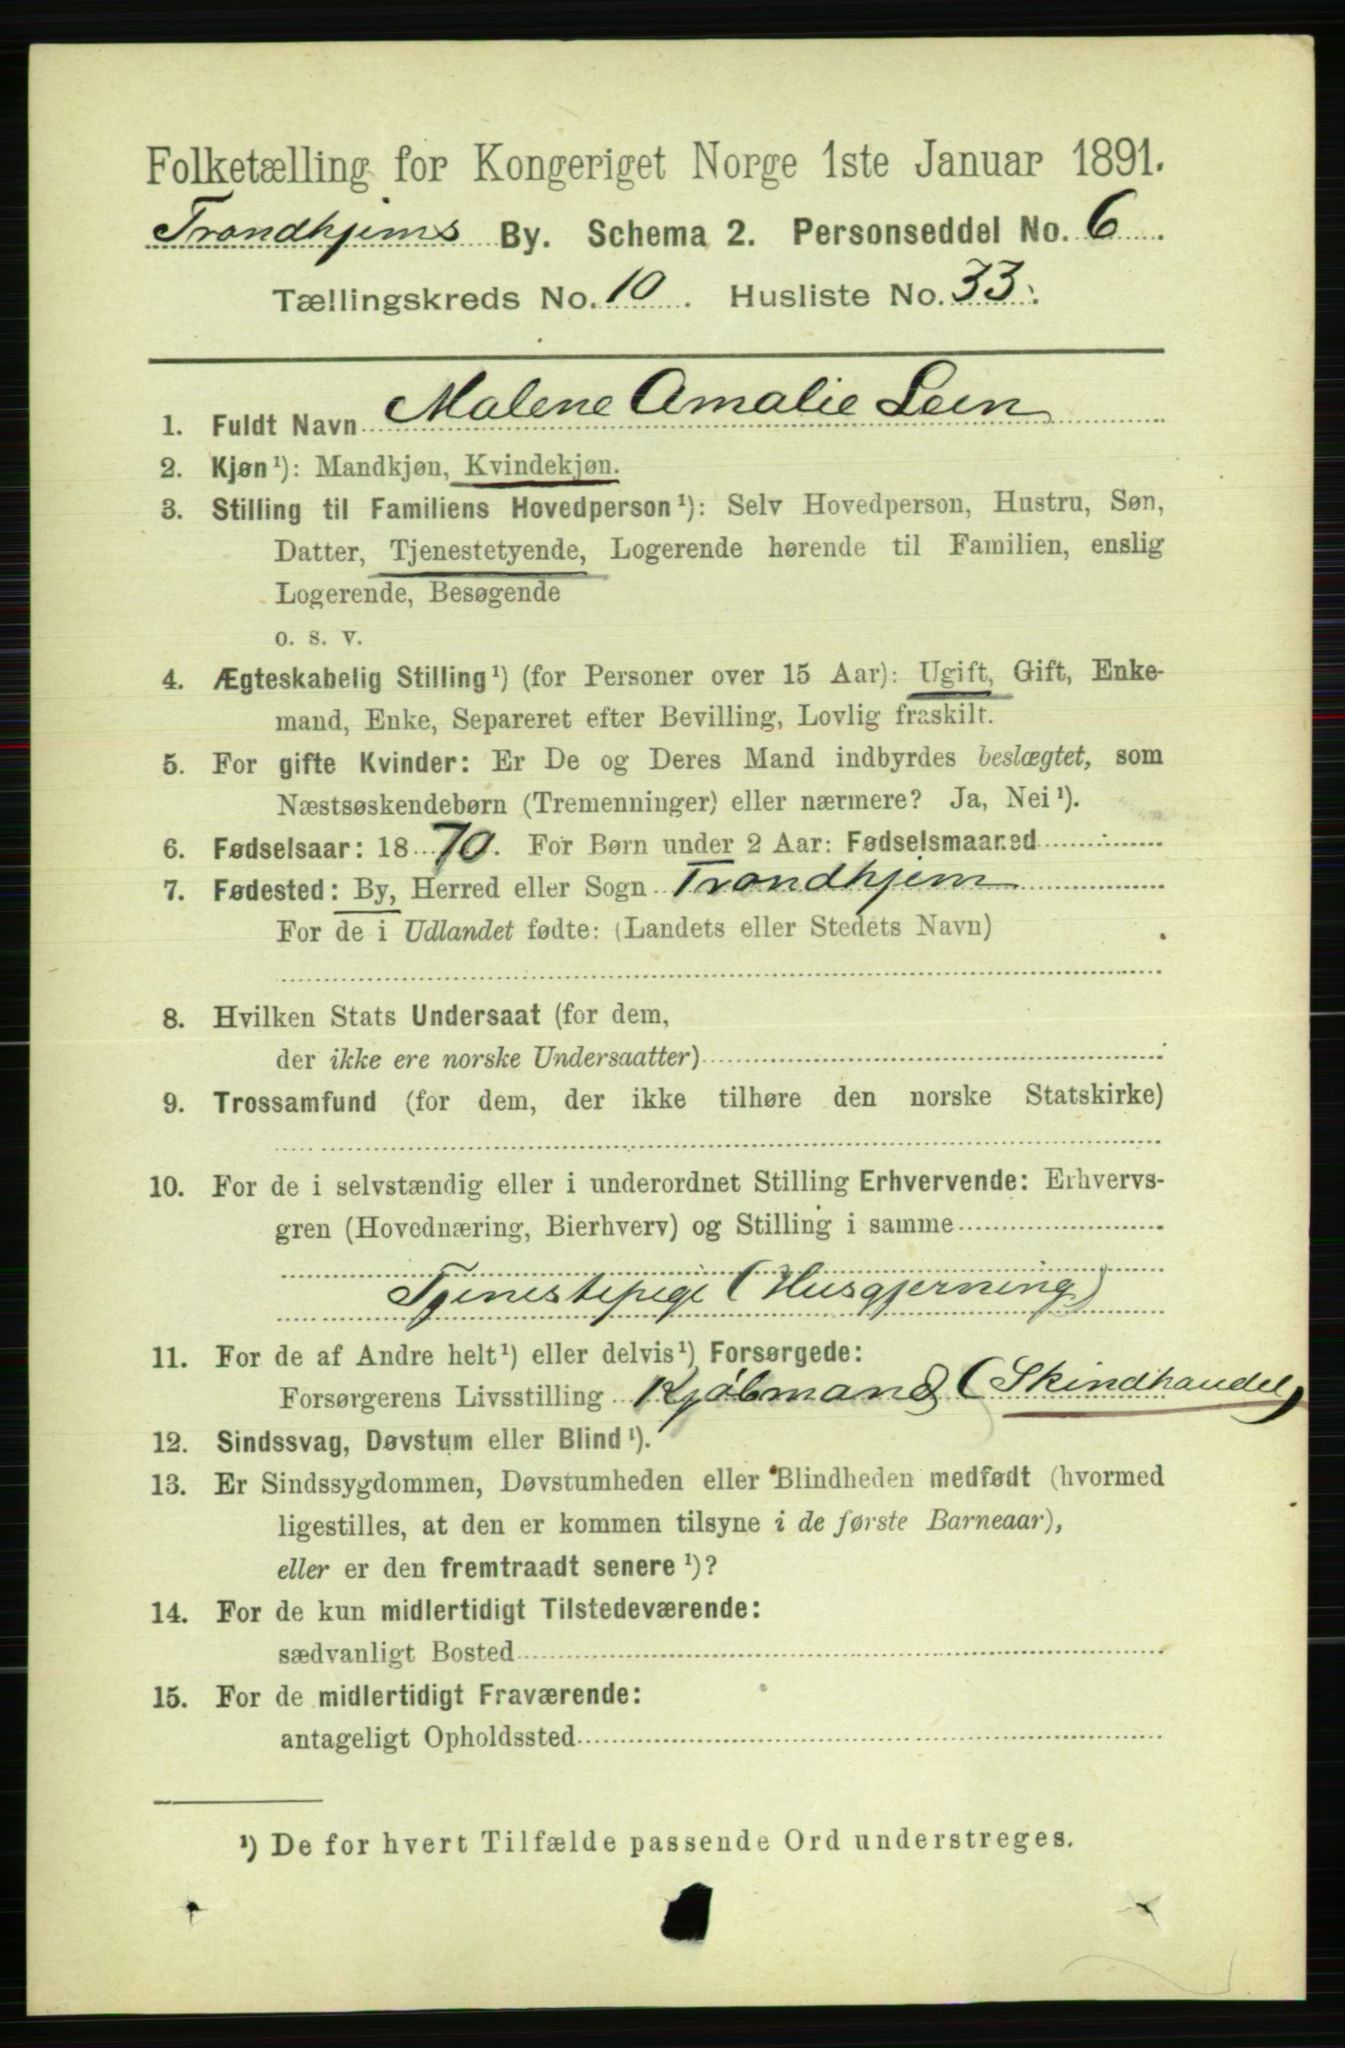 Folketælling for Kongeriget Norge 1ste Januar 1891.
Trondhjems By. Schema 2. Personseddel No. 6.
Tællingskreds No. 10. Husliste No. 33.
1. Fuldt Navn Malene Amalie Lein
2. Kjøn¹): Mandkjøn, Kvindekjøn.
3. Stilling til Familiens Hovedperson¹): Selv Hovedperson, Hustru, Søn,
Datter, Tjenestetyende, Logerende hørende til Familien, enslig
Logerende, Besøgende
o. s. v.
4. Ægteskabelig Stilling¹) (for Personer over 15 Aar): Ugift, Gift, Enke-
mand, Enke, Separeret efter Bevilling, Lovlig fraskilt.
5. For gifte Kvinder: Er De og Deres Mand indbyrdes beslægtet, som
Næstsøskendebørn (Tremenninger) eller nærmere? Ja, Nei¹).
6. Fødselsaar: 1870. For Børn under 2 Aar: Fødselsmaaned
7. Fødested: By, Herred eller Sogn Trondhjem
For de i Udlandet fødte: (Landets eller Stedets Navn)
8. Hvilken Stats Undersaat (for dem,
der ikke ere norske Undersaatter)
9. Trossamfund (for dem, der ikke tilhøre den norske Statskirke)
10. For de i selvstændig eller i underordnet Stilling Erhvervende: Erhvervs-
gren (Hovednæring, Bierhverv) og Stilling i samme
Tjenestepige (Husgjerning)
11. For de af Andre helt¹) eller delvis¹) Forsørgede:
Forsørgerens Livsstilling Kjøbmand (Skindhandel)
12. Sindssvag, Døvstum eller Blind¹).
13. Er Sindssygdommen, Døvstumheden eller Blindheden medfødt (hvormed
ligestilles, at den er kommen tilsyne i de første Barneaar),
eller er den fremtraadt senere¹)?
14. For de kun midlertidigt Tilstedeværende:
sædvanligt Bosted
15. For de midlertidigt Fraværende:
antageligt Opholdssted
¹) De for hvert Tilfælde passende Ord understreges.